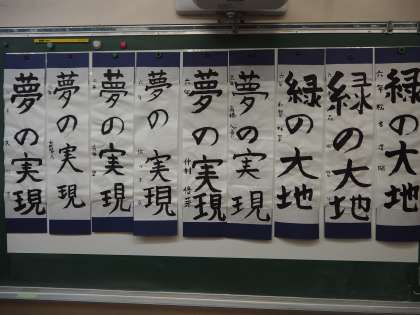 夢の実現
夢の実現
夢の実現
夢の実現
夢の実現
夢の実現
緑の大地
緑の大地
緑の大地